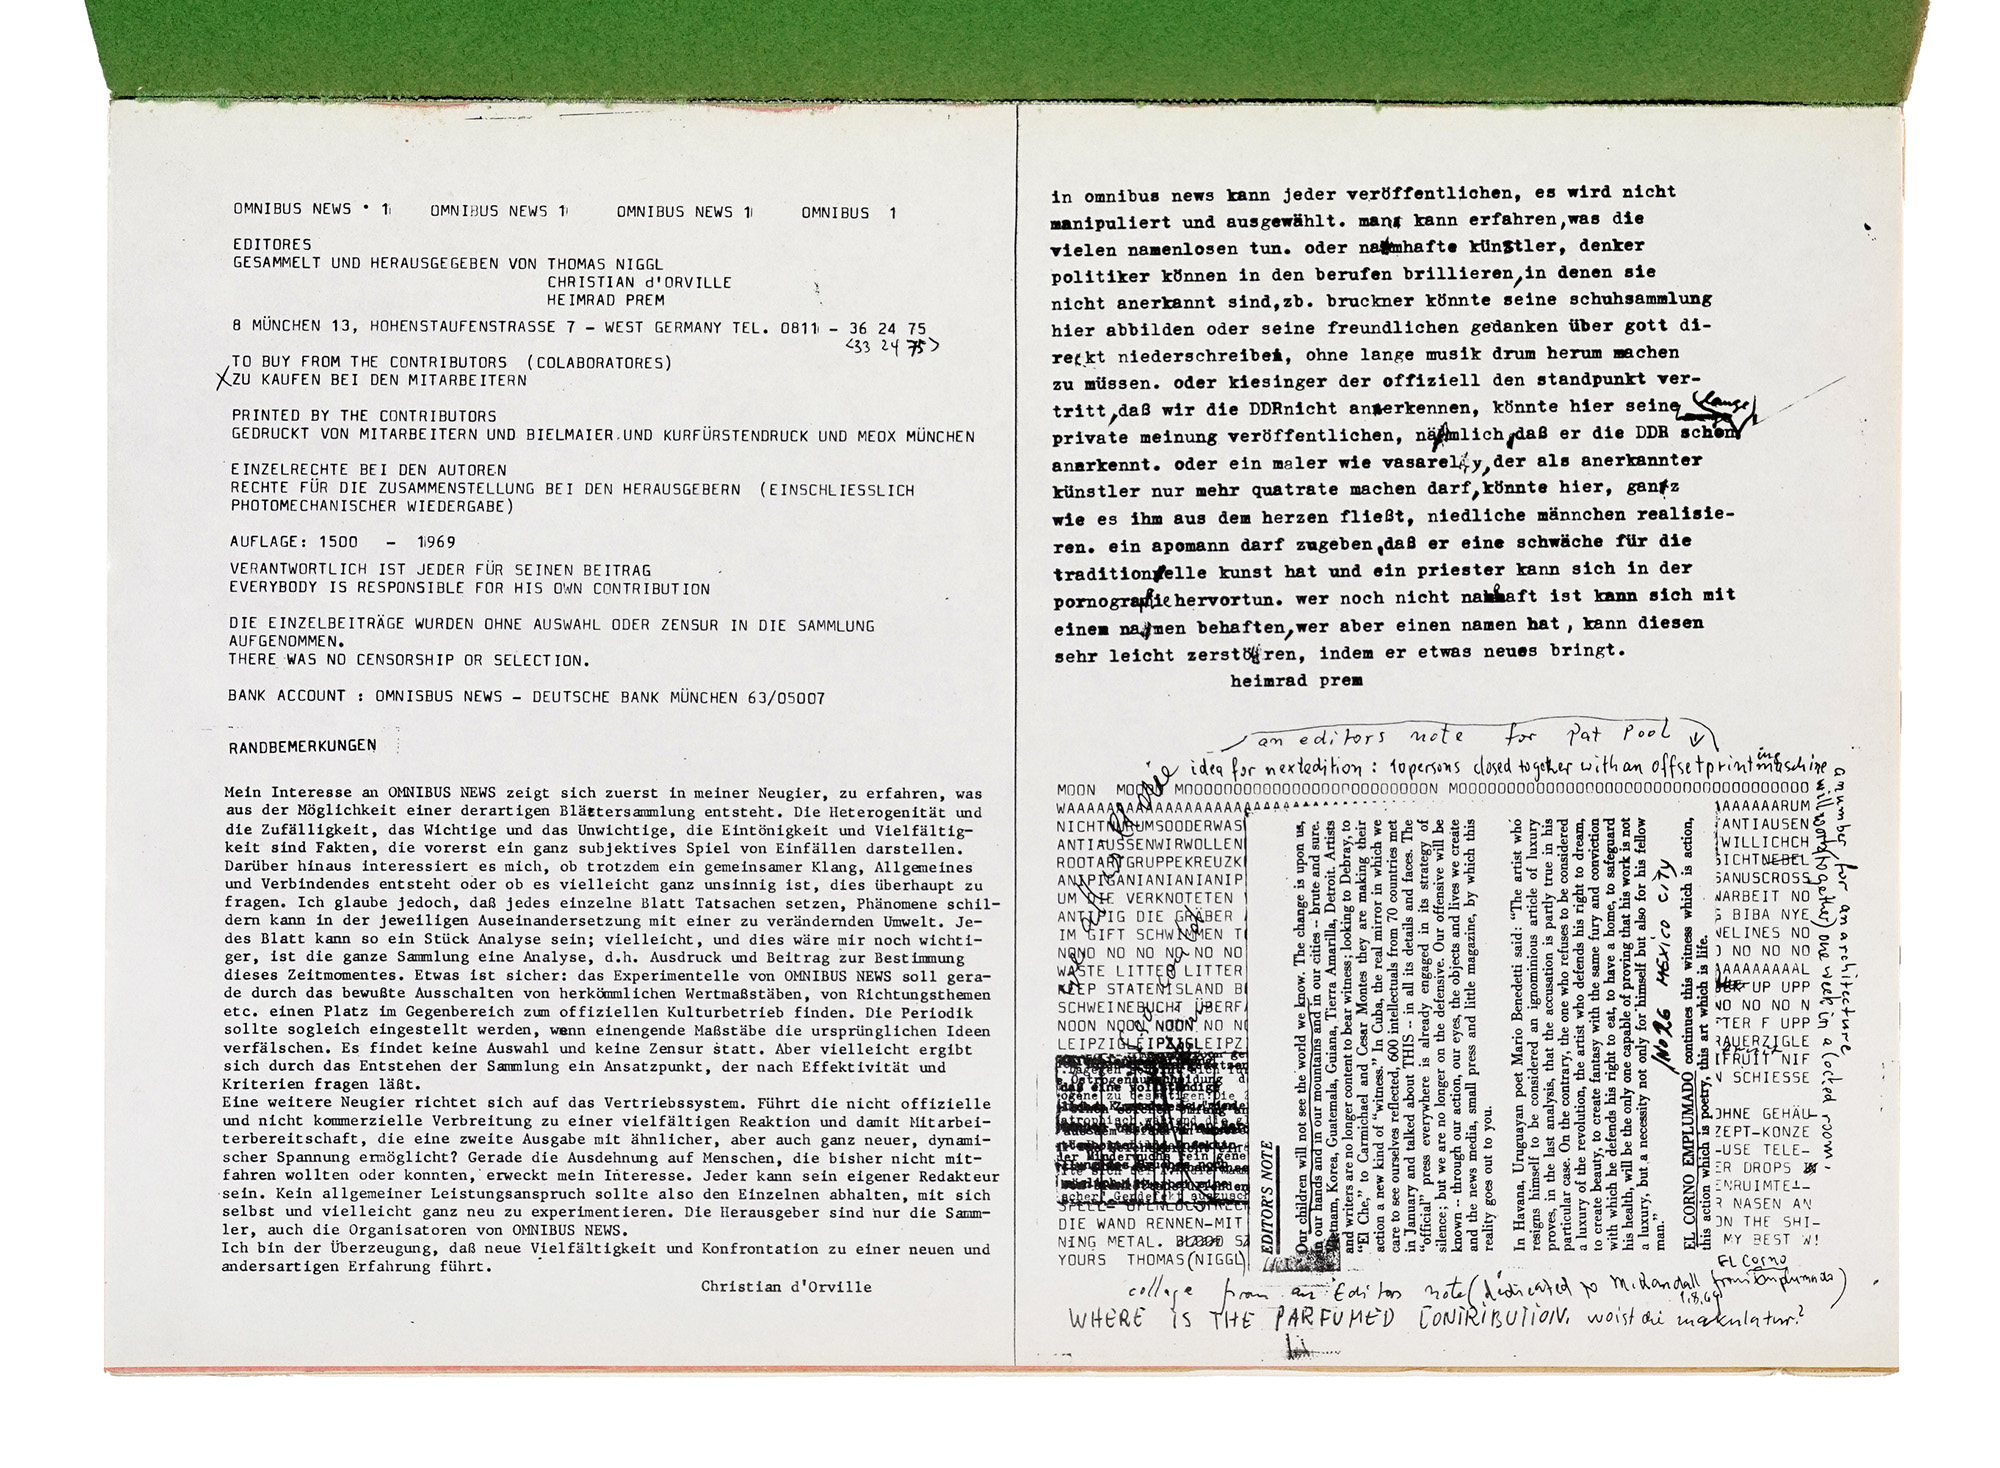 OMNIBUS NEWS • 1 OMNIBUS NEWS 1 OMNIBUS NEWS 1 OMNIBUS 1
EDITORES
GESAMMELT UND HERAUSGEGEBEN VON THOMAS NIGGL
CHRISTIAN d'ORVILLE
HEIMRAD PREM
8 MÜNCHEN 13, HOHENSTAUFENSTRASSE 7 – WEST GERMANY TEL. 0811 – 36 24 75
<33 24 75>
TO BUY FROM THE CONTRIBUTORS (COLABORATORES)
XZU KAUFEN BEI DEN MITARBEITERN
PRINTED BY THE CONTRIBUTORS
GEDRUCKT VON MITARBEITERN UND BIELMAIER UND KURFÜRSTENDRUCK UND MEOX MÜNCHEN
EINZELRECHTE BEI DEN AUTOREN
RECHTE FÜR DIE ZUSAMMENSTELLUNG BEI DEN HERAUSGEBERN (EINSCHLIESSLICH
PHOTOMECHANISCHER WIEDERGABE)
AUFLAGE: 1500 – 1969
VERANTWORTLICH IST JEDER FÜR SEINEN BEITRAG
EVERYBODY IS RESPONSIBLE FOR HIS OWN CONTRIBUTION
DIE EINZELBEITRÄGE WURDEN OHNE AUSWAHL ODER ZENSUR IN DIE SAMMLUNG
AUFGENOMMEN.
THERE WAS NO CENSORSHIP OR SELECTION.
BANK ACCOUNT : OMNISBUS NEWS – DEUTSCHE BANK MÜNCHEN 63/05007
RANDBEMERKUNGEN
Mein Interesse an OMNIBUS NEWS zeigt sich zuerst in meiner Neugier, zu erfahren, was
aus der Möglichkeit einer derartigen Blättersammlung entsteht. Die Heterogenität und
die Zufälligkeit, das Wichtige und das Unwichtige, die Eintönigkeit und Vielfältig-
keit sind Fakten, die vorerst ein ganz subjektives Spiel von Einfällen darstellen.
Darüber hinaus interessiert es mich, ob trotzdem ein gemeinsamer Klang, Allgemeines
und Verbindendes entsteht oder ob es vielleicht ganz unsinnig ist, dies überhaupt zu
fragen. Ich glaube jedoch, daß jedes einzelne Blatt Tatsachen setzen, Phänomene schil-
dern kann in der jeweiligen Auseinandersetzung mit einer zu verändernden Umwelt. Je-
des Blatt kann so ein Stück Analyse sein; vielleicht, und dies wäre mir noch wichti-
ger, ist die ganze Sammlung eine Analyse, d.h. Ausdruck und Beitrag zur Bestimmung
dieses Zeitmomentes. Etwas ist sicher: das Experimentelle von OMNIBUS NEWS soll gera-
de durch das bewußte Ausschalten von herkömmlichen Wertmaßstäben, von Richtungsthemen
etc. einen Platz im Gegenbereich zum offiziellen Kulturbetrieb finden. Die Periodik
sollte sogleich eingestellt werden, wenn einengende Maßstäbe die ursprünglichen Ideen
verfälschen. Es findet keine Auswahl und keine Zensur statt. Aber vielleicht ergibt
sich durch das Entstehen der Sammlung ein Ansatzpunkt, der nach Effektivität und
Kriterien fragen läßt.
Eine weitere Neugier richtet sich auf das Vertriebssystem. Führt die nicht offizielle
und nicht kommerzielle Verbreitung zu einer vielfältigen Reaktion und damit Mitarbei-
terbereitschaft, die eine zweite Ausgabe mit ähnlicher, aber auch ganz neuer, dynami-
scher Spannung ermöglicht? Gerade die Ausdehnung auf Menschen, die bisher nicht mit-
fahren wollten oder konnten, erweckt mein Interesse. Jeder kann sein eigener Redakteur
sein. Kein allgemeiner Leistungsanspruch sollte also den Einzelnen abhalten, mit sich
selbst und vielleicht ganz neu zu experimentieren. Die Herausgeber sind nur die Samm-
ler, auch die Organisatoren von OMNIBUS NEWS.
Ich bin der Überzeugung, daß neue Vielfältigkeit und Konfrontation zu einer neuen und
andersartigen Erfahrung führt.
Christian d'Orville
in omnibus news kann jeder veröffentlichen, es wird nicht
manipuliert und ausgewählt. man kann erfahren,was die
vielen namenlosen tun. oder namhafte künstler, denker
politiker können in den berufen brillieren,in denen sie
nicht anerkannt sind,zb. bruckner könnte seine schuhsammlung
hier abbilden oder seine freundlichen gedanken über gott di-
reckt niederschreiben, ohne lange musik drum herum machen
zu müssen. oder kiesinger der offiziell den standpunkt ver-
tritt,daß wir die DDRnicht anerkennen, könnte hier seine
lange
private meinung veröffentlichen, nämlich,daß er die DDR schon
anerkennt. oder ein maler wie vasarely,der als anerkannter
künstler nur mehr quatrate machen darf,könnte hier, gantz
wie es ihm aus dem herzen fließt, niedliche männchen realisie-
ren. ein apomann darf zugeben,daß er eine schwäche für die
traditionelle kunst hat und ein priester kann sich in der
pornografie hervortun. wer noch nicht namhaft ist kann sich mit
einem namen behaften,wer aber einen namen hat, kann diesen
sehr leicht zerstören, indem er etwas neues bringt.
heimrad prem
an editors note for Pat Pool
idea for nextedition : 10persons closed together with an offsetprinting maschine
MOON MOON MOOOOOOOOOOOOOOOOOOOOOOOOOOON MOOOOOOOOOOOOOOOOOOOOOOOOOOOOOOOOOOO
WAAAAAAAAAAAAAAAAAAAAAAAA AAAAAARUM
NICHTWARUMSOODERWAS ANTIAUSEN
ANTIAUSSENWIRWOLLEN WILLICHCH
ROOTARTGRUPPEKREUZK SICHTNEBEL
ANPIGANIANIANIANIP SANUSCROSS
UM DIE VERKNOTETEN WARBEIT NO
ANTIPIG DIE GRÄBER BIBA NYE
IM GIFT SCHWIMMEN T NELINES NO
NONO NO NO NO NO O NO NO NO
WASTE LITTER LITTER AAAAAAAAAL
KEEP STATENISLAND B UP UPP
SCHWEINEBUCHT ÜBERF NO NO NO N
NOON NOON NOON NO N TER F UPP
LEIPZIGLEIPZIGLEIPZ RAUERZIGLE
FRUIT NIF
N SCHIESSE
OHNE GEHÄU–
ZEPT-KONZE
-USE TELE-
ER DROPS
ENRUIMTE
R NASEN AN
DIE WAND RENNEN-MIT ON THE SHI-
NING METAL. MY BEST W!
YOURS THOMAS(NIGGL)
EDITOR'S NOTE
Our children will not see the world we know. The change is upon us,
in our hands and in our mountains and in our cities -- brute and sure.
Vietnam, Korea, Guatemala, Guiana, Tierra Amarilla, Detroit. Artists
and writers are no longer content to bear witness; looking to Debray, to
"El Che," to Carmichael and Cesar Montes they are making their
action a new kind of "witness." In Cuba, the real mirror in which we
care to see ourselves reflected, 600 intellectuals from 70 countries met
in January and talked about THIS -- in all its details and faces. The
"official" press everywhere is already engaged in its strategy of
silence; but we are no longer on the defensive. Our offensive will be
known -- through our action, our eyes, the objects and lives we create
and the news media, small press and little magazine, by which this
reality goes out to you.
In Havana, Uruguayan poet Mario Benedetti said: "The artist who
resigns himself to be considered an ignominious article of luxury
proves, in the last analysis, that the accusation is partly true in his
particular case. On the contrary, the one who refuses to be considered
a luxury of the revolution, the artist who defends his right to dream,
to create beauty, to create fantasy with the same fury and conviction
with which he defends his right to eat, to have a home, to safeguard
his health, will be the only one capable of proving that his work is not
a luxury, but a necessity not only for himself but also for his fellow
man."
No 26 MEXICO CITY
EL CORNO EMPLUMADO continues this witness which is action,
this action which is poetry, this art which is life.
a number for an architecture
will work (together) one week in a locked room.
EL Corno
collage from an Editors note (dedicated to M. Randall from Emplumado)
1.8.69
WHERE IS THE PARFUMED CONTRIBUTION, wo ist die makulatur?